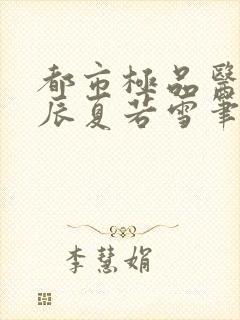 都市極品醫
辰夏若雪筆
李慧娟